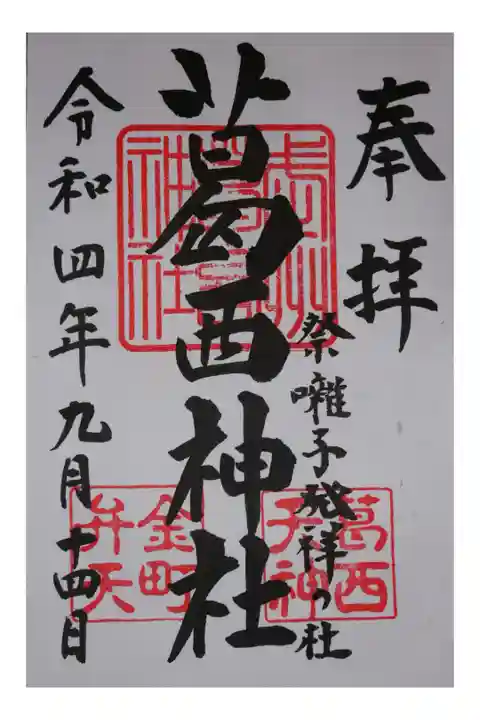 奉拝
祭囃子発祥の社
葛西神社
令和四年九月十四日
武州葛西神社
葛西天神
金町弁天